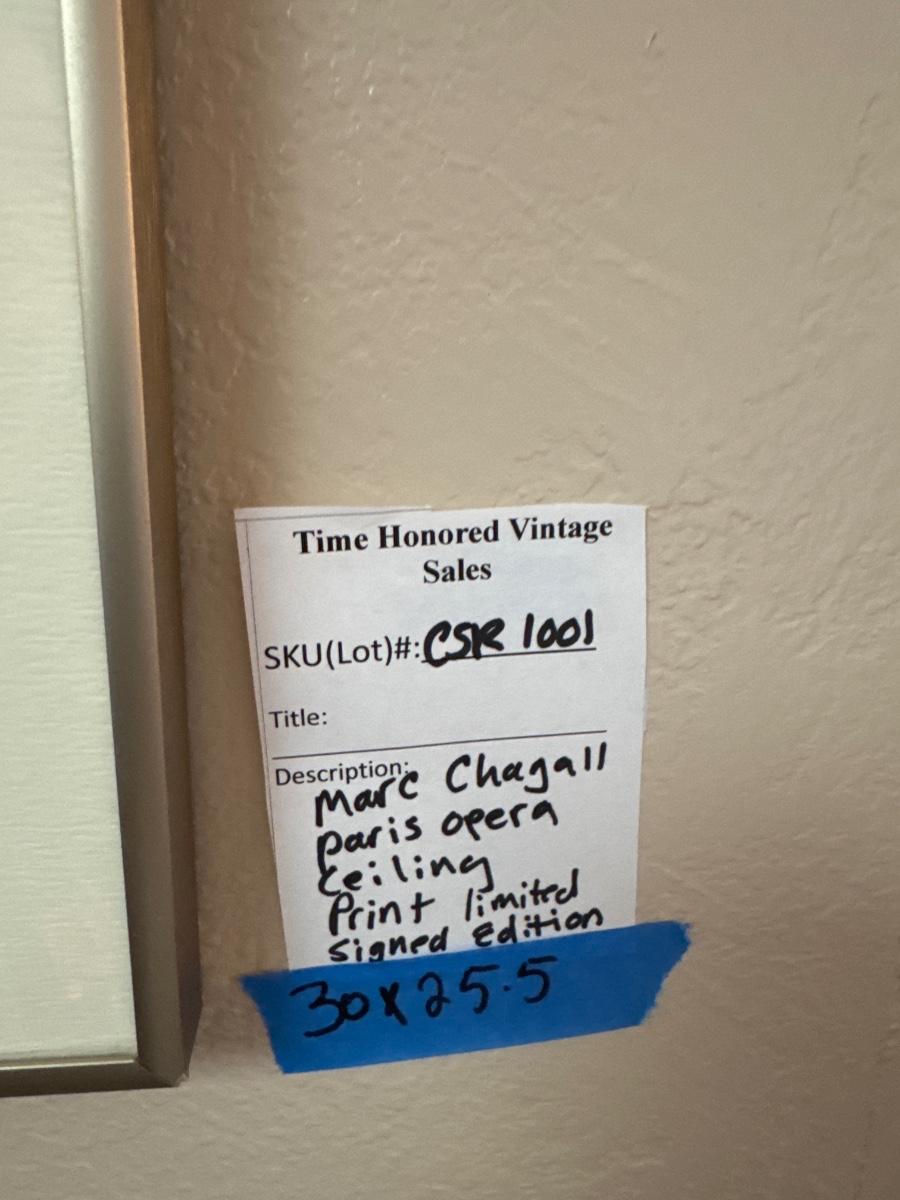 Time Honored Vintage
Sales
SKU(Lot)#: CSR 1001
Title:
Description:
Marc Chagall
paris opera
Ceiling
Print limited
signed Edition
30x25.5